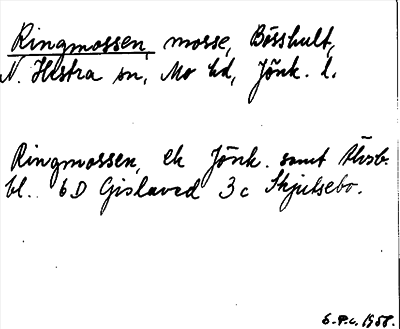 Ringmossen, mosse, Bösshult,
N. Hestra sn, Mo hd, Jönk. l.
Ringmossen, ek Jönk. samt Älvsb.
bl. 6D Gislaved 3c Skjutsebo.
1958.